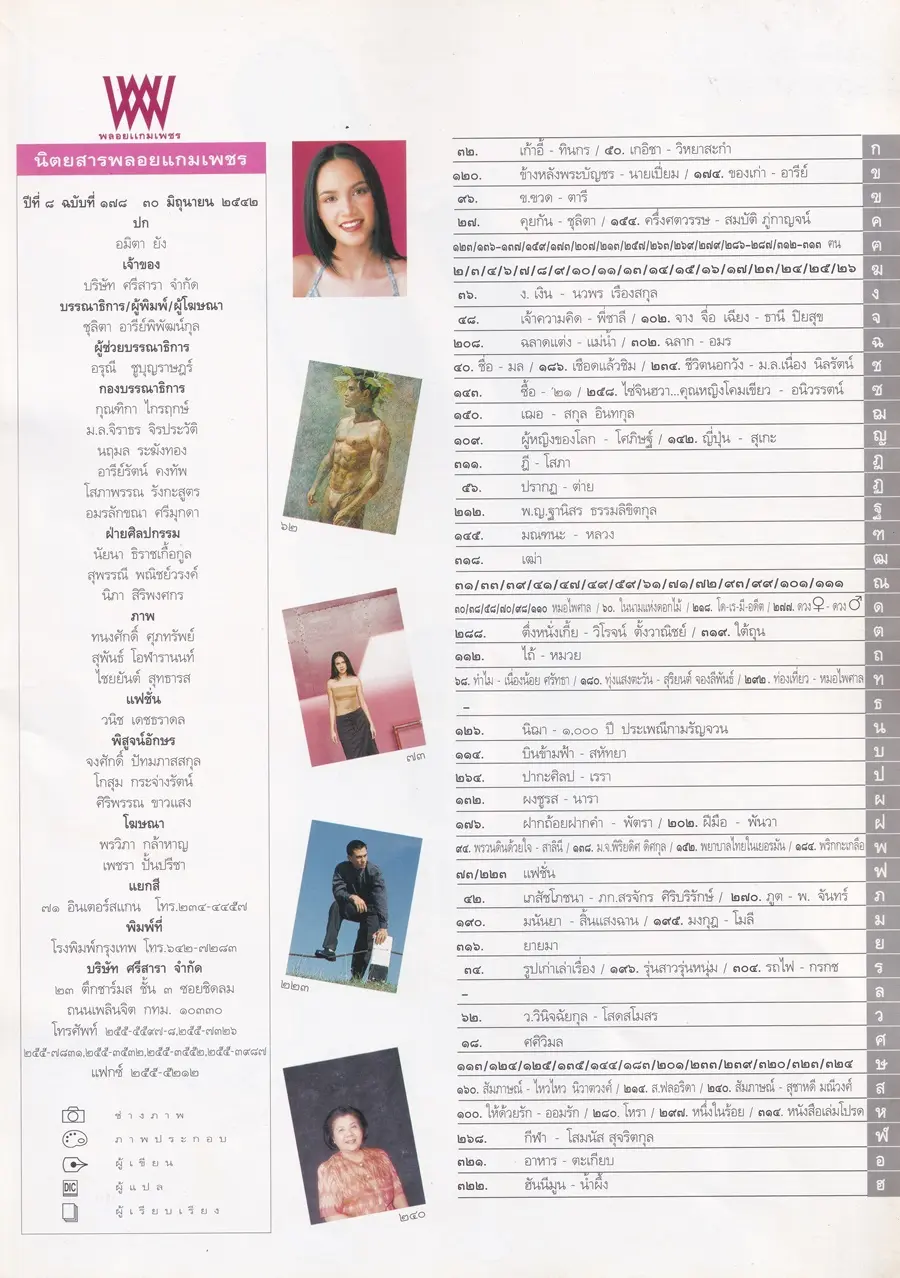 พลอยแกมเพชร
นิตยสารพลอยแกมเพชร
ปีที่ ๘ ฉบับที่ ๑๗๘ ๓๐ มิถุนายน ๒๕๔๒
ปก
อมิตา ยัง
เจ้าของ
บริษัท ศรีสารา จำกัด
บรรณาธิการ/ผู้พิมพ์/ผู้โฆษณา
ชุลิตา อารีย์พิพัฒน์กุล
ผู้ช่วยบรรณาธิการ
อรุณี ชูบุญราษฎร์
กองบรรณาธิการ
กุณฑิกา ไกรฤกษ์
ม.ล.จิราธร จิรประวัติ
นฤมล ระฆังทอง
อารีย์รัตน์ คงทัพ
โสภาพรรณ รังกะสูตร
อมรลักขณา ศรีมุกดา
ฝ่ายศิลปกรรม
นัยนา ธิราชเกื้อกูล
สุพรรณี พณิชย์วรงค์
นิภา สิริพงศกร
ภาพ
ทนงศักดิ์ ศุภทรัพย์
สุพันธ์ โอฬารานนท์
ไชยยันต์ สุทธารส
แฟชั่น
วนิช เดชธราดล
พิสูจน์อักษร
จงศักดิ์ ปัทมภาสสกุล
โกสุม กระจ่างรัตน์
ศิริพรรณ ขาวแสง
โฆษณา
พรวิภา กล้าหาญ
เพชรา ปั้นปรีชา
แยกสี
๗๑ อินเตอร์สแกน โทร.๒๓๔-๔๔๕๗
พิมพ์ที่
โรงพิมพ์กรุงเทพ โทร.๖๔๒-๗๒๘๓
บริษัท ศรีสารา จำกัด
๒๓ ตึกชาร์มส ชั้น ๓ ซอยชิดลม
ถนนเพลินจิต กทม. ๑๐๓๓๐
โทรศัพท์ ๒๕๕-๕๕๙๗-๘,๒๕๕-๗๓๒๖
๒๕๕-๗๘๓๑,๒๕๕-๓๕๓๒,๒๕๕-๓๕๕๒,๒๕๕-๓๙๘๗
แฟกซ์ ๒๕๕-๕๒๑๒
ช่างภาพ
ภาพประกอบ
ผู้เขียน
DIC ผู้แปล
ผู้เรียบเรียง
๖๒
๗๓
๒๒๓
๒๔๐
๓๒. เก้าอี้ - ทินกร / ๕๐. เกอิชา - วิทยาสะกำ ก
๑๒๐. ข้างหลังพระบัญชร - นายเปี่ยม / ๑๗๔. ของเก่า - อารีย์ ข
๙๖. ฃ.ขวด - ตารี ฃ
๒๗. คุยกัน - ชุลิตา / ๑๕๔. ครึ่งศตวรรษ - สมบัติ ภู่กาญจน์ ค
๑๒๓/๑๓๖-๑๓๗/๑๕๙/๑๗๓/๒๐๗/๒๑๓/๒๕๗/๒๖๓/๒๖๙/๒๗๙/๒๘๖-๒๘๗/๓๑๒-๓๑๓ ฅน ฅ
๒/๓/๔/๖/๗/๘/๙/๑๐/๑๑/๑๓/๑๔/๑๕/๑๖/๑๗/๒๓/๒๔/๒๕/๒๖ ฆ
๓๖. ง. เงิน - นวพร เรืองสกุล ง
๔๘. เจ้าความคิด - พี่ชาลี / ๑๐๒. จาง จื่อ เฉียง - ธานี ปิยสุข จ
๒๐๘. ฉลาดแต่ง - แม่น้ำ / ๓๐๒. ฉลาก - อมร ฉ
๔๐. ชื่อ - มล / ๑๘๖. เชือดแล้วชิม / ๒๓๔. ชีวิตนอกวัง - ม.ล.เนื่อง นิลรัตน์ ช
๑๔๓. ซื้อ - '๒๑ / ๒๕๘. ไซ่จินฮวา...คุณหญิงโคมเขียว - อนิวรรตน์ ซ
๑๕๐. เฌอ - สกุล อินทกุล ฌ
๑๐๙. ผู้หญิงของโลก - โศภิษฐ์ / ๑๔๒. ญี่ปุ่น - สุเกะ ญ
๓๑๑. ฎี - โสภา ฎ
๕๖. ปรากฏ - ต่าย ฏ
๒๑๒. พ.ญ.ฐานิสร ธรรมลิขิตกุล ฐ
๑๔๕. มณฑนะ - หลวง ฑ
๓๑๘. เฒ่า ฒ
๓๑/๓๓/๓๙/๔๑/๔๗/๔๙/๕๙/๖๑/๗๑/๗๒/๙๓/๙๙/๑๐๑/๑๑๑ ณ
๓๐/๓๘/๕๘/๗๐/๙๘/๑๑๐ หมอไพศาล / ๖๐. ในนามแห่งดอกไม้ / ๒๑๘. โด-เร-มี-อดีต / ๒๗๗. ดวง♀ - ดวง♂ ด
๒๘๘. ตึ่งหนั่งเกี้ย - วิโรจน์ ตั้งวาณิชย์ / ๓๑๙. ใต้ถุน ต
๑๑๒. ไถ้ - หมวย ถ
๖๘. ทำไม - เนื่องน้อย ศรัทธา / ๑๘๐. ทุ่งแสงตะวัน - สุริยนต์ จองลีพันธ์ / ๒๙๒. ท่องเที่ยว - หมอไพศาล ท
- ธ
๑๒๖. นิฌา - ๑,๐๐๐ ปี ประเพณีกามรัญจวน น
๑๑๔. บินข้ามฟ้า - สหัทยา บ
๒๖๔. ปากะศิลป - เรรา ป
๑๓๒. ผงชูรส - นารา ผ
๑๗๖. ฝากถ้อยฝากคำ - พัตรา / ๒๐๒. ฝีมือ - พันวา ฝ
๙๔. พรวนดินด้วยใจ - สาลินี / ๑๓๘. ม.จ.พิริยดิศ ดิศกุล / ๑๕๒. พยาบาลไทยในเยอรมัน / ๑๘๔. พริกกะเกลือ พ
๗๓/๒๒๓ แฟชั่น ฟ
๔๒. เภสัชโภชนา - ภก.สรจักร ศิริบริรักษ์ / ๒๗๐. ภูต - พ. จันทร์ ภ
๑๙๐. มนันยา - สิ้นแสงฉาน / ๑๙๕. มงกุฎ - โมลี ม
๓๑๖. ยายมา ย
๓๔. รูปเก่าเล่าเรื่อง / ๑๙๖. รุ่นสาวรุ่นหนุ่ม / ๓๐๔. รถไฟ - กรกช ร
- ล
๖๒. ว.วินิจฉัยกุล - โสดสโมสร ว
๑๘. ศศิวิมล ศ
๑๑๓/๑๒๔/๑๒๕/๑๓๕/๑๔๔/๑๘๓/๒๐๑/๒๓๓/๒๓๙/๓๒๐/๓๒๓/๓๒๔ ษ
๑๖๐. สัมภาษณ์ - ไหวไหว นิวาตวงศ์ / ๒๑๔. ส.ฟลอริดา / ๒๔๐. สัมภาษณ์ - สุชาหดี มณีวงศ์ ส
๑๐๐. ให้ด้วยรัก - ออมรัก / ๒๘๐. โหรา / ๒๙๗. หนึ่งในร้อย / ๓๑๔. หนังสือเล่มโปรด ห
๒๖๘. กีฬา - โสมนัส สุจริตกุล ฬ
๓๒๑. อาหาร - ตะเกียบ อ
๓๒๒. ฮันนีมูน - น้ำผึ้ง ฮ